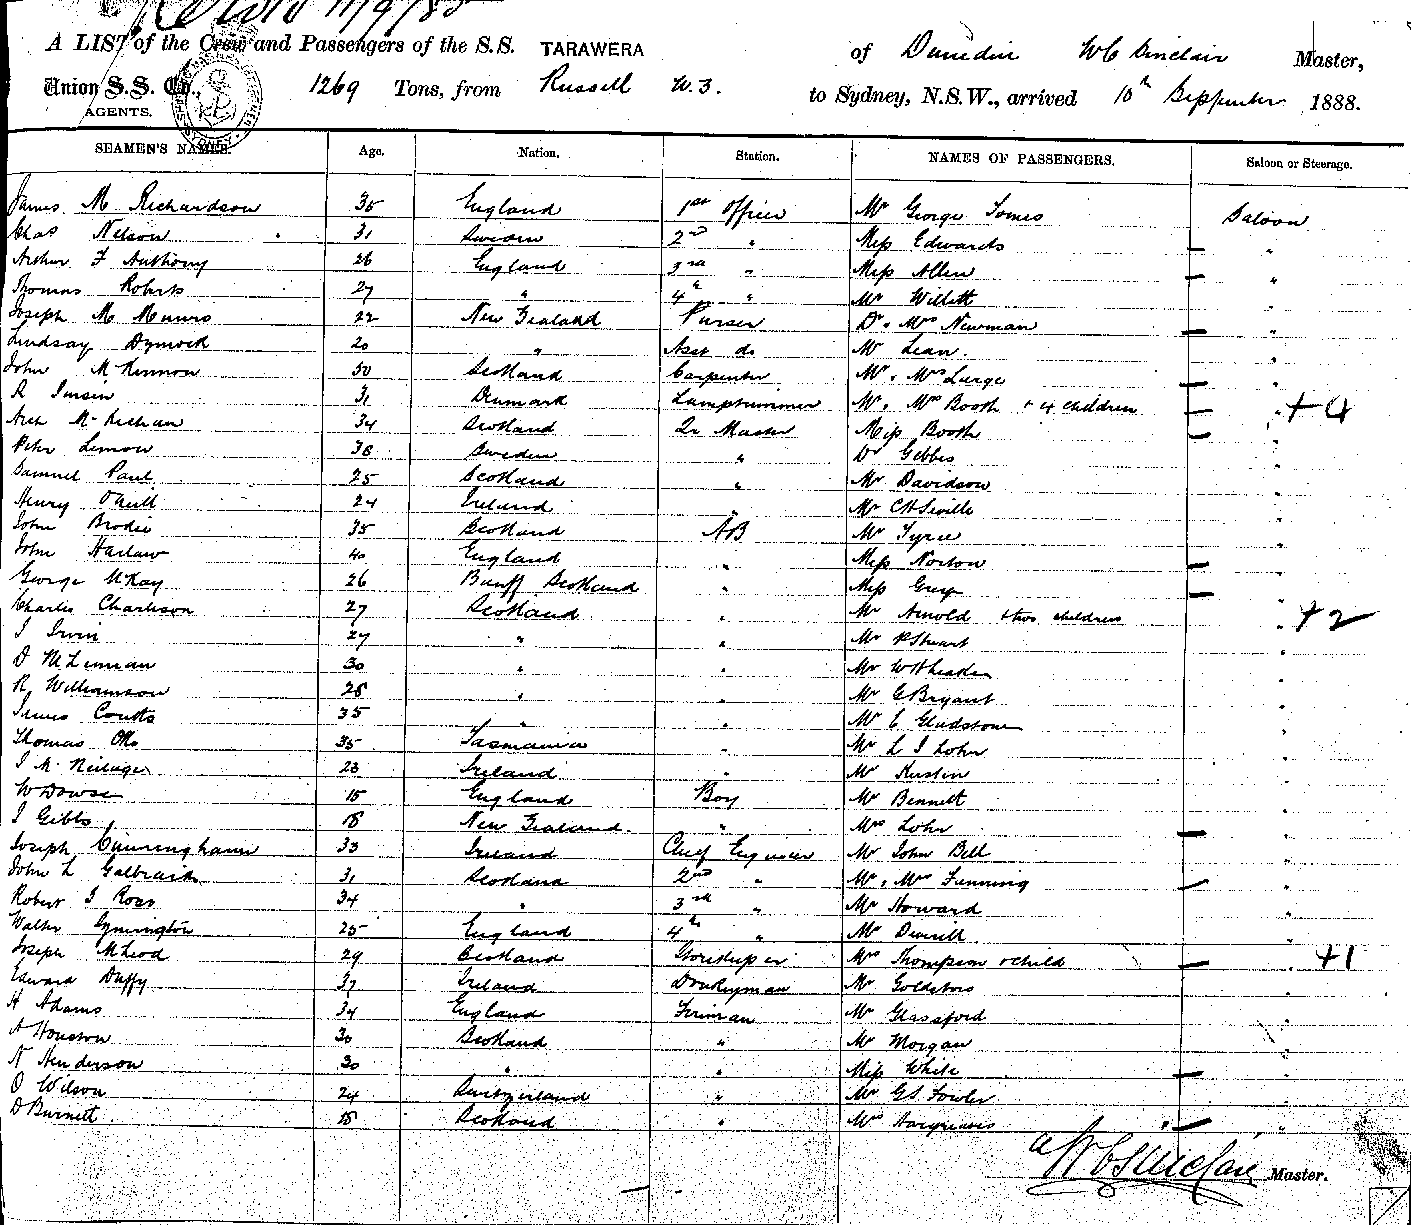 A LIST of the Crew and Passengers of the S.S. TARAWERA of Dunedin W C Sinclair Master,
Union S.S. Co., 1269 Tons, from Russell N.Z. to Sydney, N.S.W., arrived 10th September 1888.
AGENTS.
SEAMEN'S NAMES. Age. Nation. Station. NAMES OF PASSENGERS. Saloon or Steerage.
James M Richardson 35 England 1st Officer Mr George Tomes Saloon
Chas Nelson 31 Sweden 2nd " Miss Edwards "
Arthur F Anthony 26 England 3rd " Miss Allen "
Thomas Roberts 27 " 4th " Mr Willett "
Joseph M Munro 22 New Zealand Purser Dr & Mrs Newman "
Lindsay Dymock 20 " Asst do Mr Lean "
John McKinnon 50 Scotland Carpenter Mr & Mrs Large "
R Jensen 31 Denmark Lamptrimmer Mr & Mrs Booth + 4 children " +4
Arch McKechan 34 Scotland Qr Master Miss Booth "
Peter Lemow 38 Sweden " Dr Gibbes "
Samuel Paul 25 Scotland " Mr Davidson "
Henry O'Neill 24 Ireland " Mr C H Seville "
John Brodie 35 Scotland AB Mr Tyrie "
John Harlaw 40 England " Miss Norton "
George McKay 26 Banff Scotland " Miss Grey "
Charles Charleson 27 Scotland " Mr Arnold + two children " +2
J Irvin 27 " " Mr P Stuart "
D McLennan 30 " " Mr W Hheaden "
R Williamson 28 " " Mr G Bryant "
James Coutts 35 " " Mr E Gladstone "
Thomas Otto 35 Tasmania " Mr L J Lohr "
J McNeilage 23 Ireland " Mr Austin "
W Dowse 15 England Boy Mr Bennett "
J Gibbs 18 New Zealand " Mrs Lohr "
Joseph Cunningham 33 Ireland Chief Engineer Mr John Bell "
John L Galbraith 31 Scotland 2nd " Mr & Mrs Fanning "
Robert J Ross 34 " 3rd " Mr Howard "
Walter Symington 25 England 4th " Mr Deverill "
Joseph McLeod 29 Scotland Storekeeper Mrs Thompson & child " +1
Edward Duffy 37 Ireland Donkeyman Mr Goldsbro "
H Adams 34 England Fireman Mr Glassford "
A Houston 30 Scotland " Mr Morgan "
N Henderson 30 " " Miss White "
O Wilson 24 Switzerland " Mr G S Fowler "
D Burnett 18 Scotland " Mrs Hargreaves "
W C Sinclair Master.